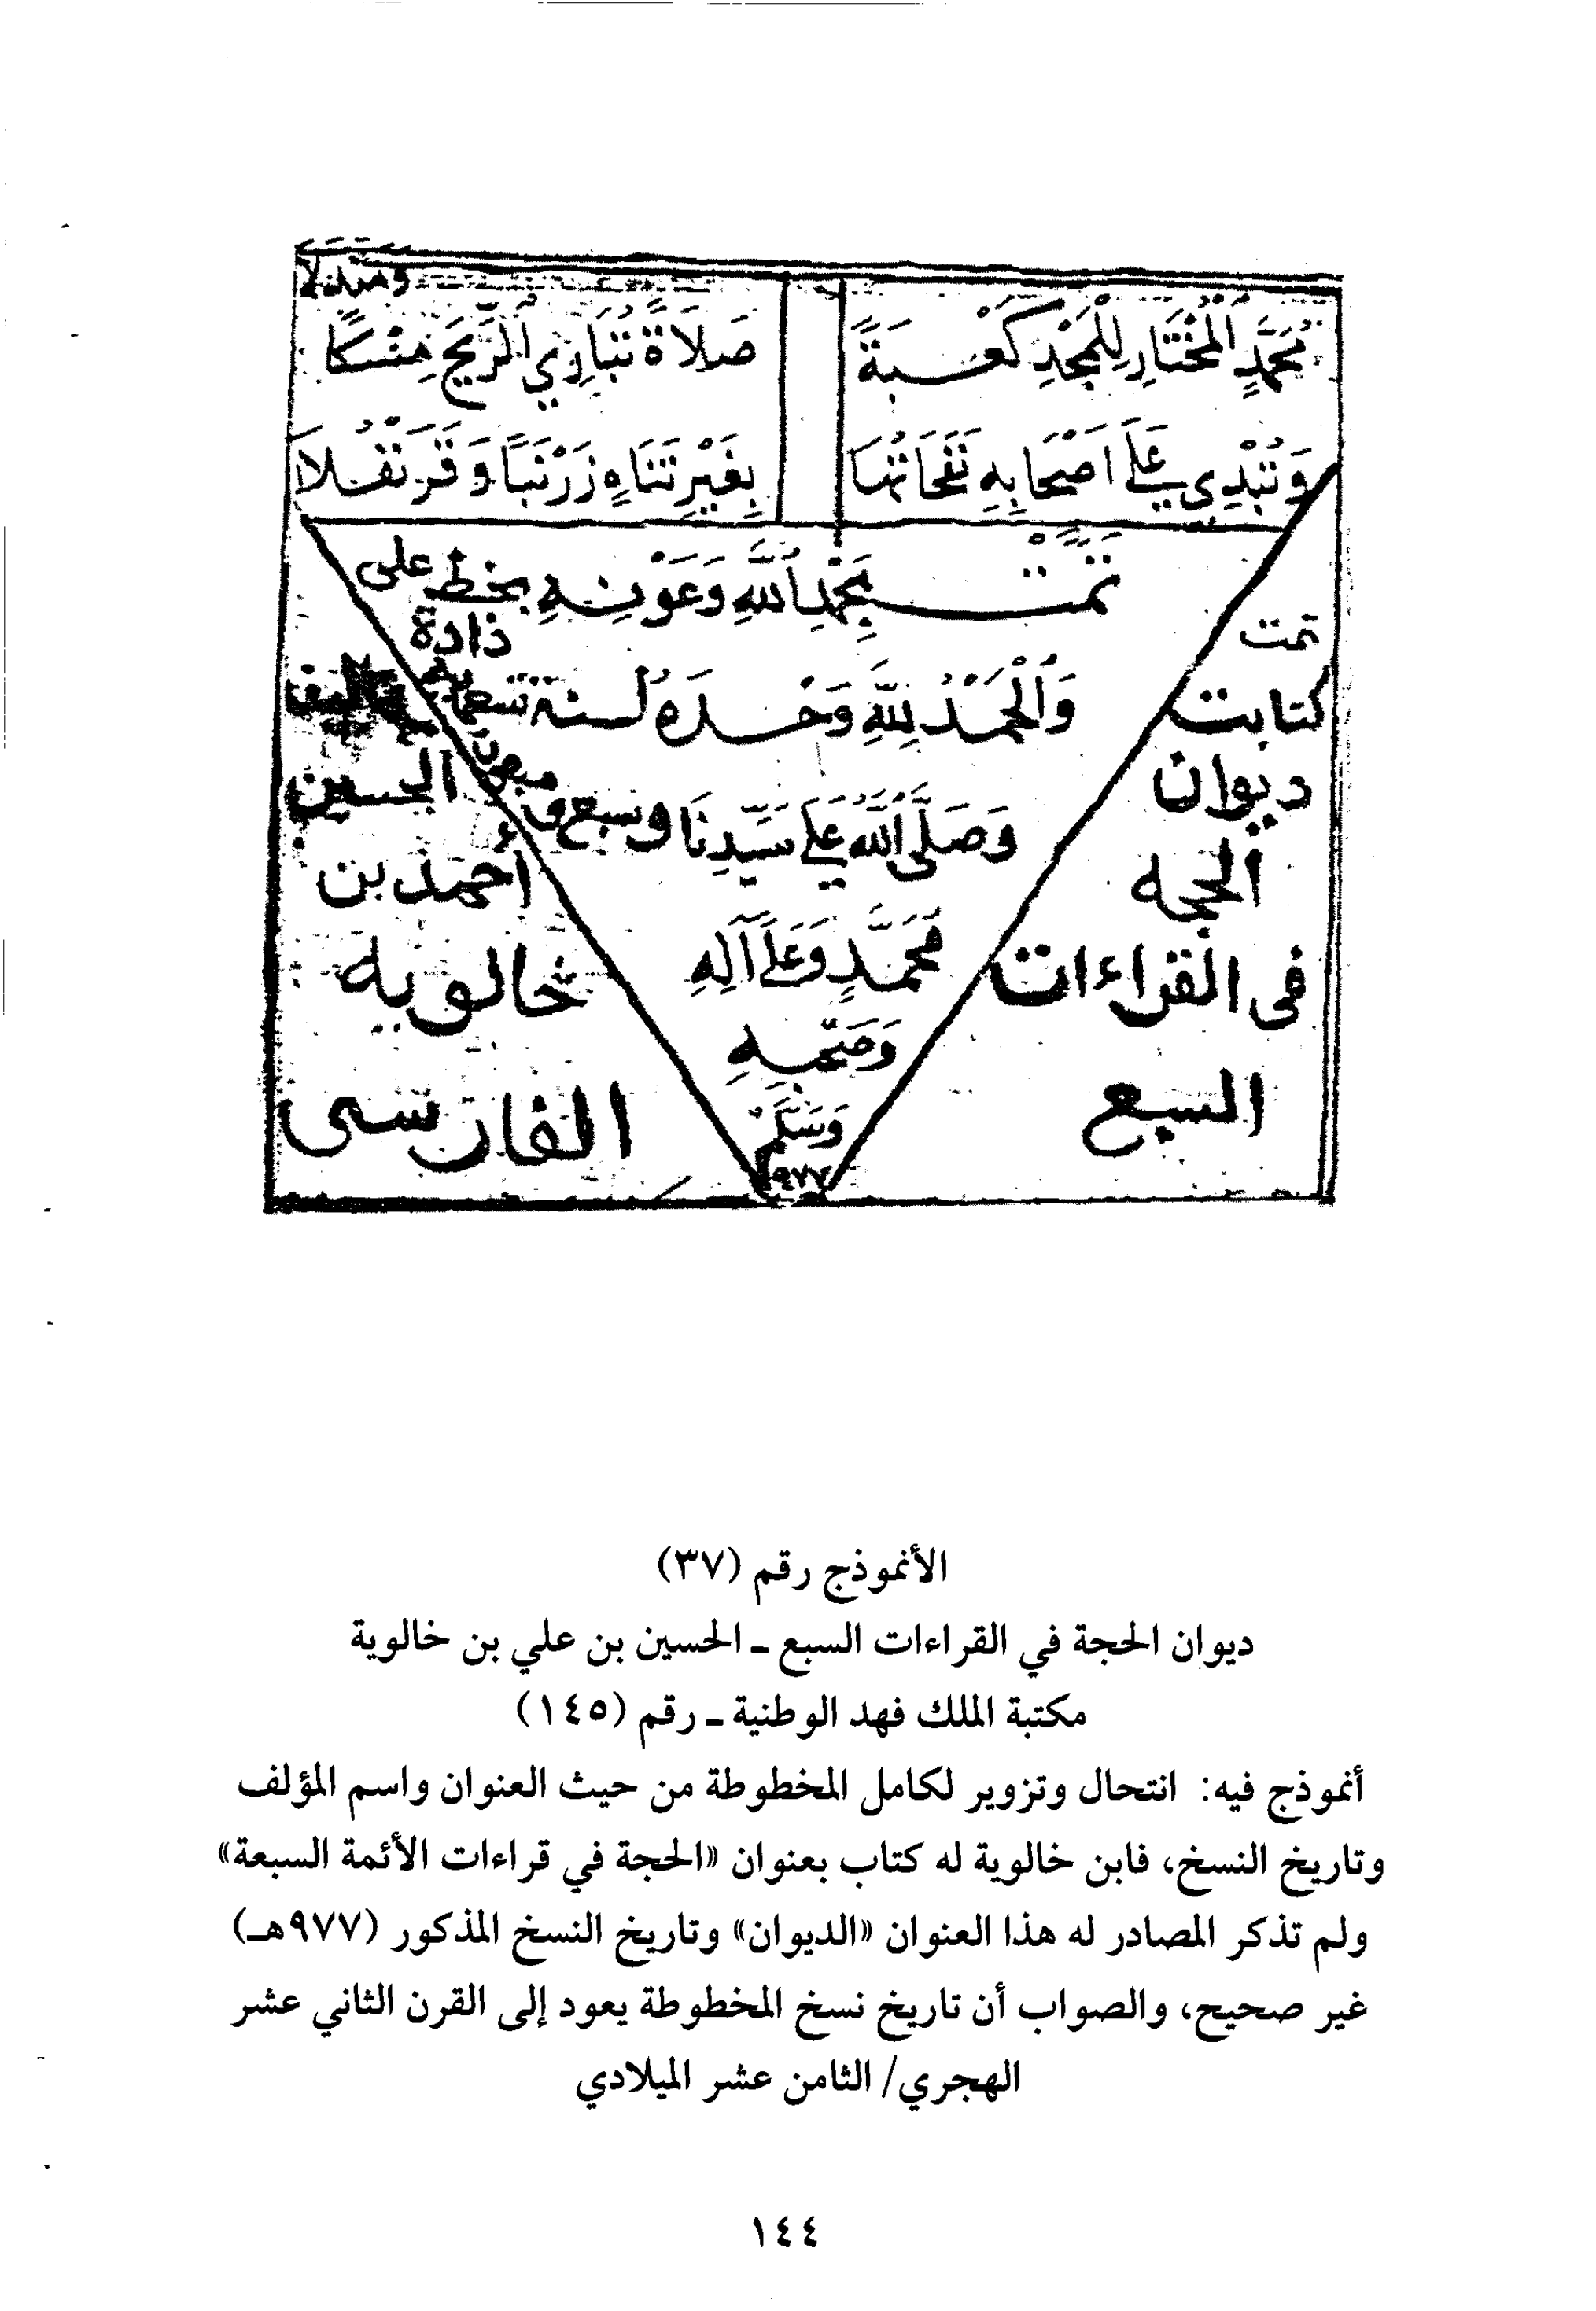 ومندلا
مُحَمَّدٍ الْمُخْتَارِ لِلْمَجْدِ كَعْبَةً صَلَاةً تُبَارِي الرِّيحَ مِسْكًا
وَتُبْدِي عَلَى أَصْحَابِهِ نَفَحَاتُهَا بِغَيْرِ تَنَاهٍ زَرْنَبًا وَقَرَنْفُلَا
تَمَّتْ بِحَمْدِ اللَّهِ وَعَوْنِهِ بخط على
ذادة
وَالْحَمْدُ لِلَّهِ وَحْدَهُ لسنة تسعمايه
وَصَلَّى اللَّهُ عَلَى سَيِّدِنَا وسبع و
مُحَمَّدٍ وَعَلَى آلِهِ
وَصَحْبِهِ
وَسَلَّمْ
٩٧٧
تمت
كتابت
ديوان
الحجه
فى القراءات
السبع
الحسين
أحمد بن
خالويه
الفارسى
الأنموذج رقم (٣٧)
ديوان الحجة في القراءات السبع ـ الحسين بن علي بن خالوية
مكتبة الملك فهد الوطنية ـ رقم (١٤٥)
أنموذج فيه: انتحال وتزوير لكامل المخطوطة من حيث العنوان واسم المؤلف
وتاريخ النسخ، فابن خالوية له كتاب بعنوان «الحجة في قراءات الأئمة السبعة»
ولم تذكر المصادر له هذا العنوان «الديوان» وتاريخ النسخ المذكور (٩٧٧هـ)
غير صحيح، والصواب أن تاريخ نسخ المخطوطة يعود إلى القرن الثاني عشر
الهجري/ الثامن عشر الميلادي
١٤٤